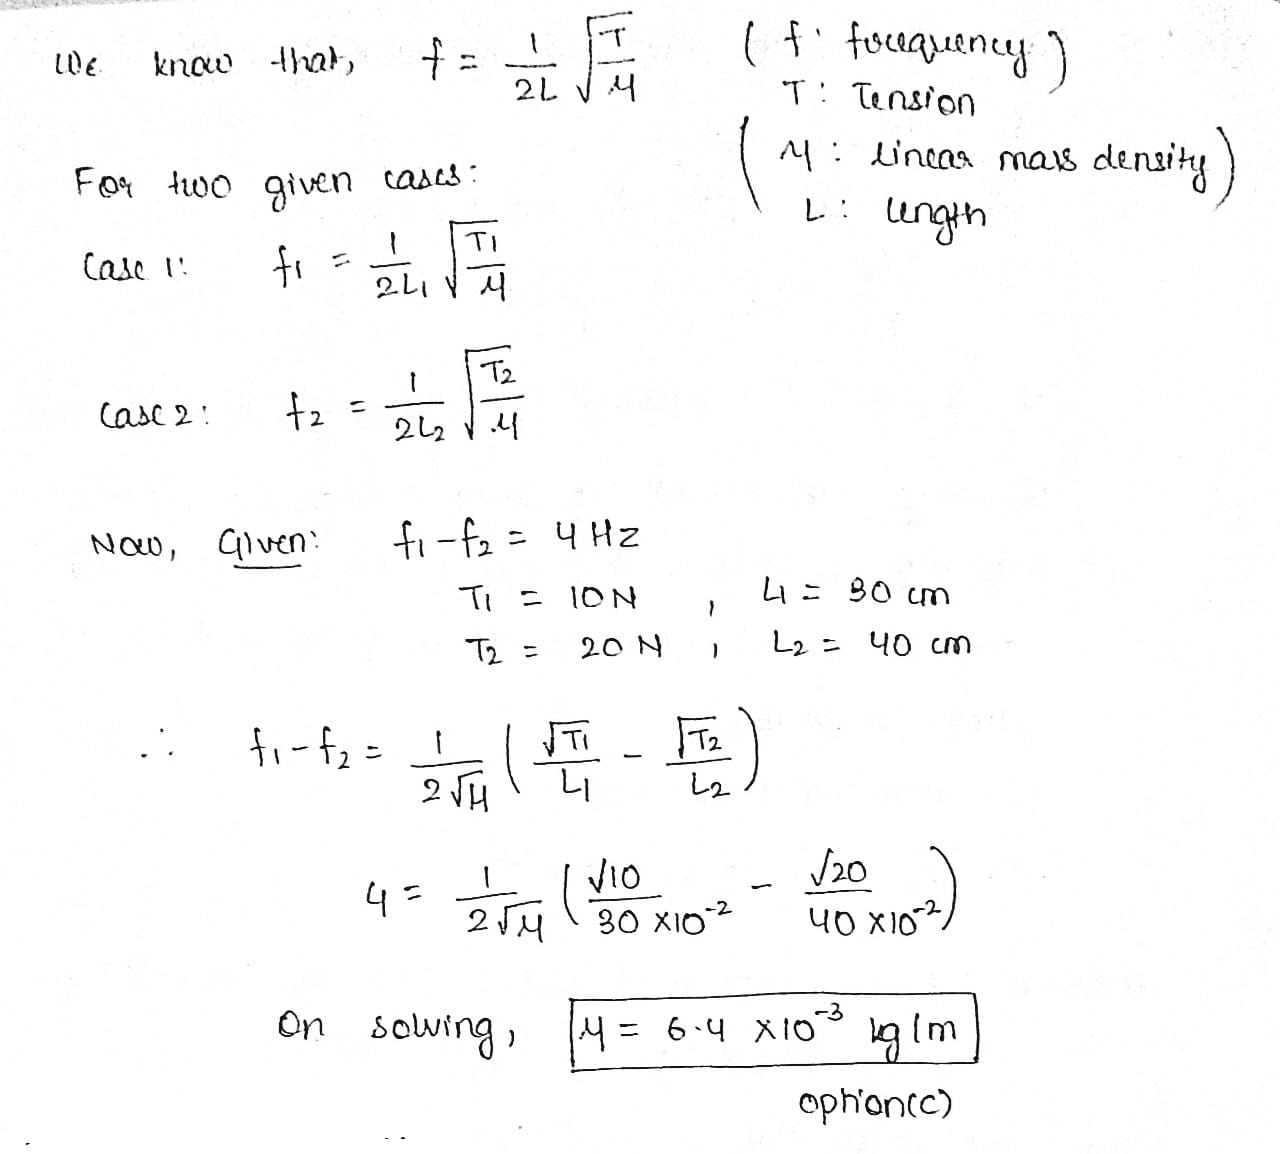 We know that, f = 1/2L √T/μ ( f: frequency )
T: Tension
( μ: Linear mass density )
L: length
For two given cases:
Case 1: f1 = 1/2L1 √T1/μ
Case 2: f2 = 1/2L2 √T2/μ
Now, Given: f1 - f2 = 4 Hz
T1 = 10 N , L1 = 30 cm
T2 = 20 N , L2 = 40 cm
∴ f1 - f2 = 1/2√μ ( √T1/L1 - √T2/L2 )
4 = 1/2√μ ( √10/30 ×10^-2 - √20/40 ×10^-2 )
On solving, μ = 6.4 ×10^-3 kg/m
option(c)